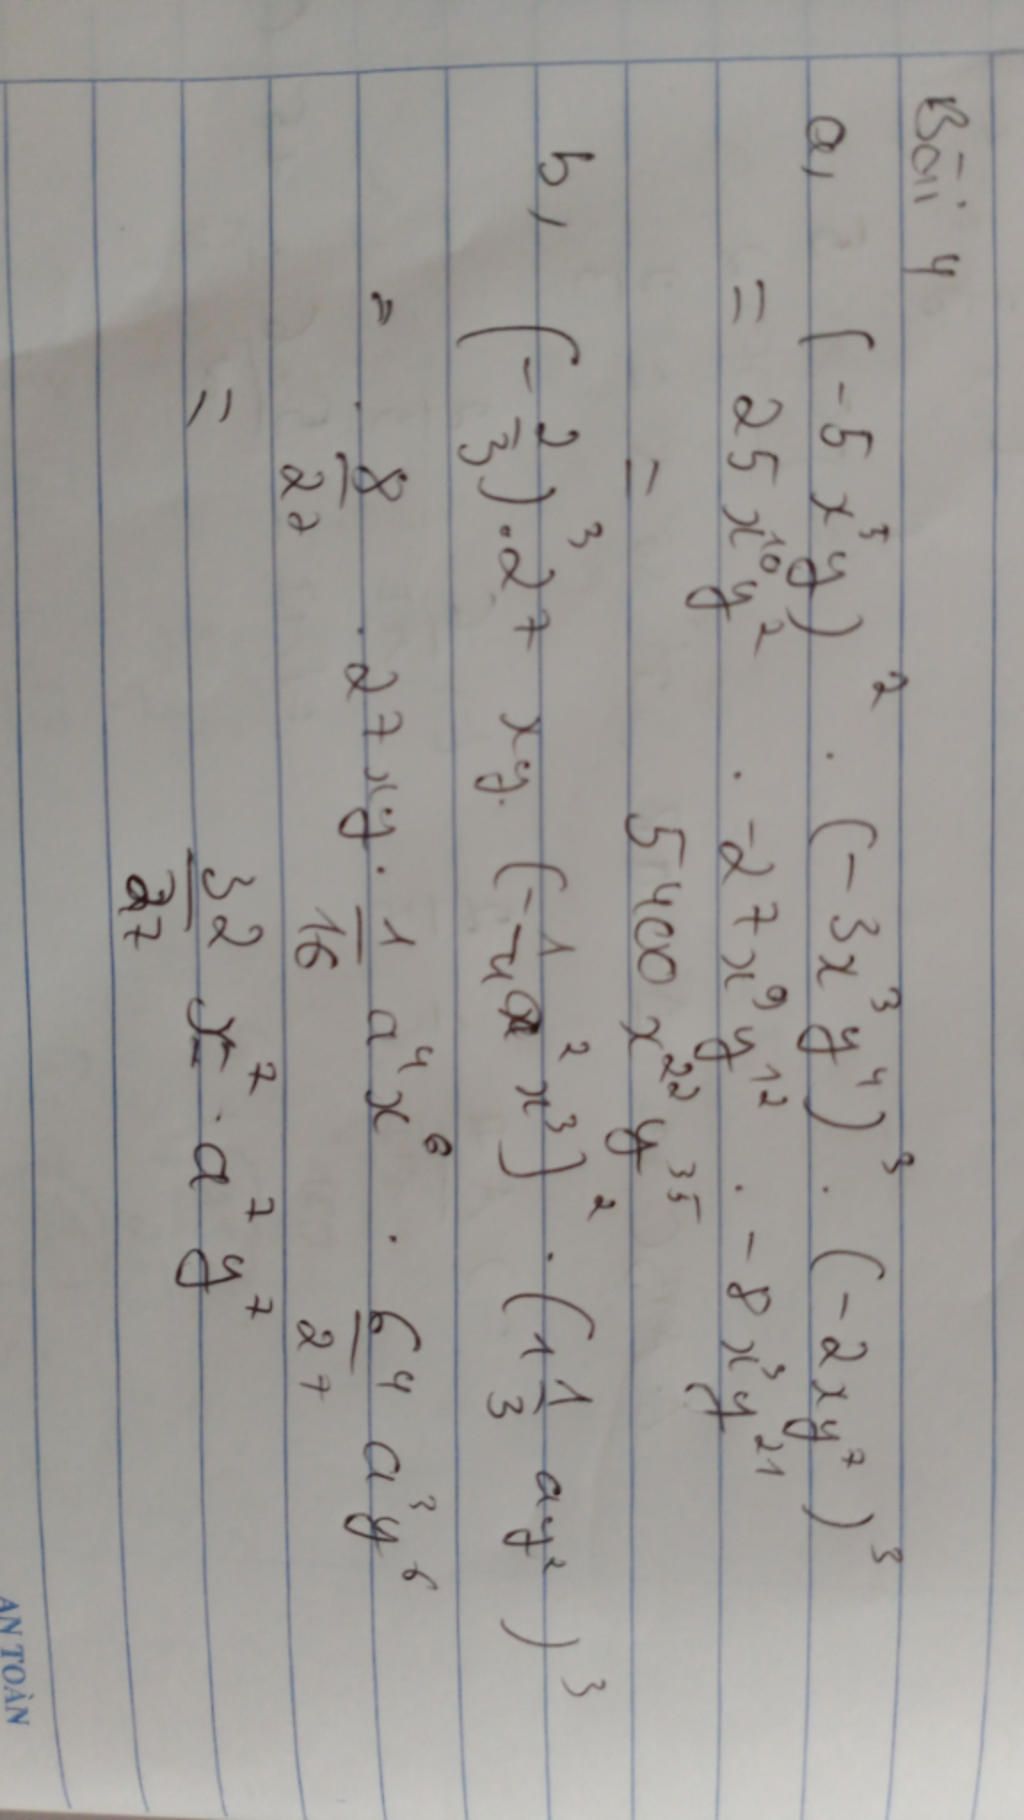 Bài 4
a, (-5x⁵y)² . (-3x³y⁴)³ . (-2xy⁷)³
= 25x¹⁰y² . -27x⁹y¹² . -8x³y²¹
= 5400x²²y³⁵
b, (-2/3)³.27 xy. (-1/4a²x³)² . (1 1/3 ay²)³
= . 8/27 . 27xy. 1/16 a⁴x⁶ . 64/27 a³y⁶
= 32/27 x⁷.a⁷y⁷
AN TOÀN